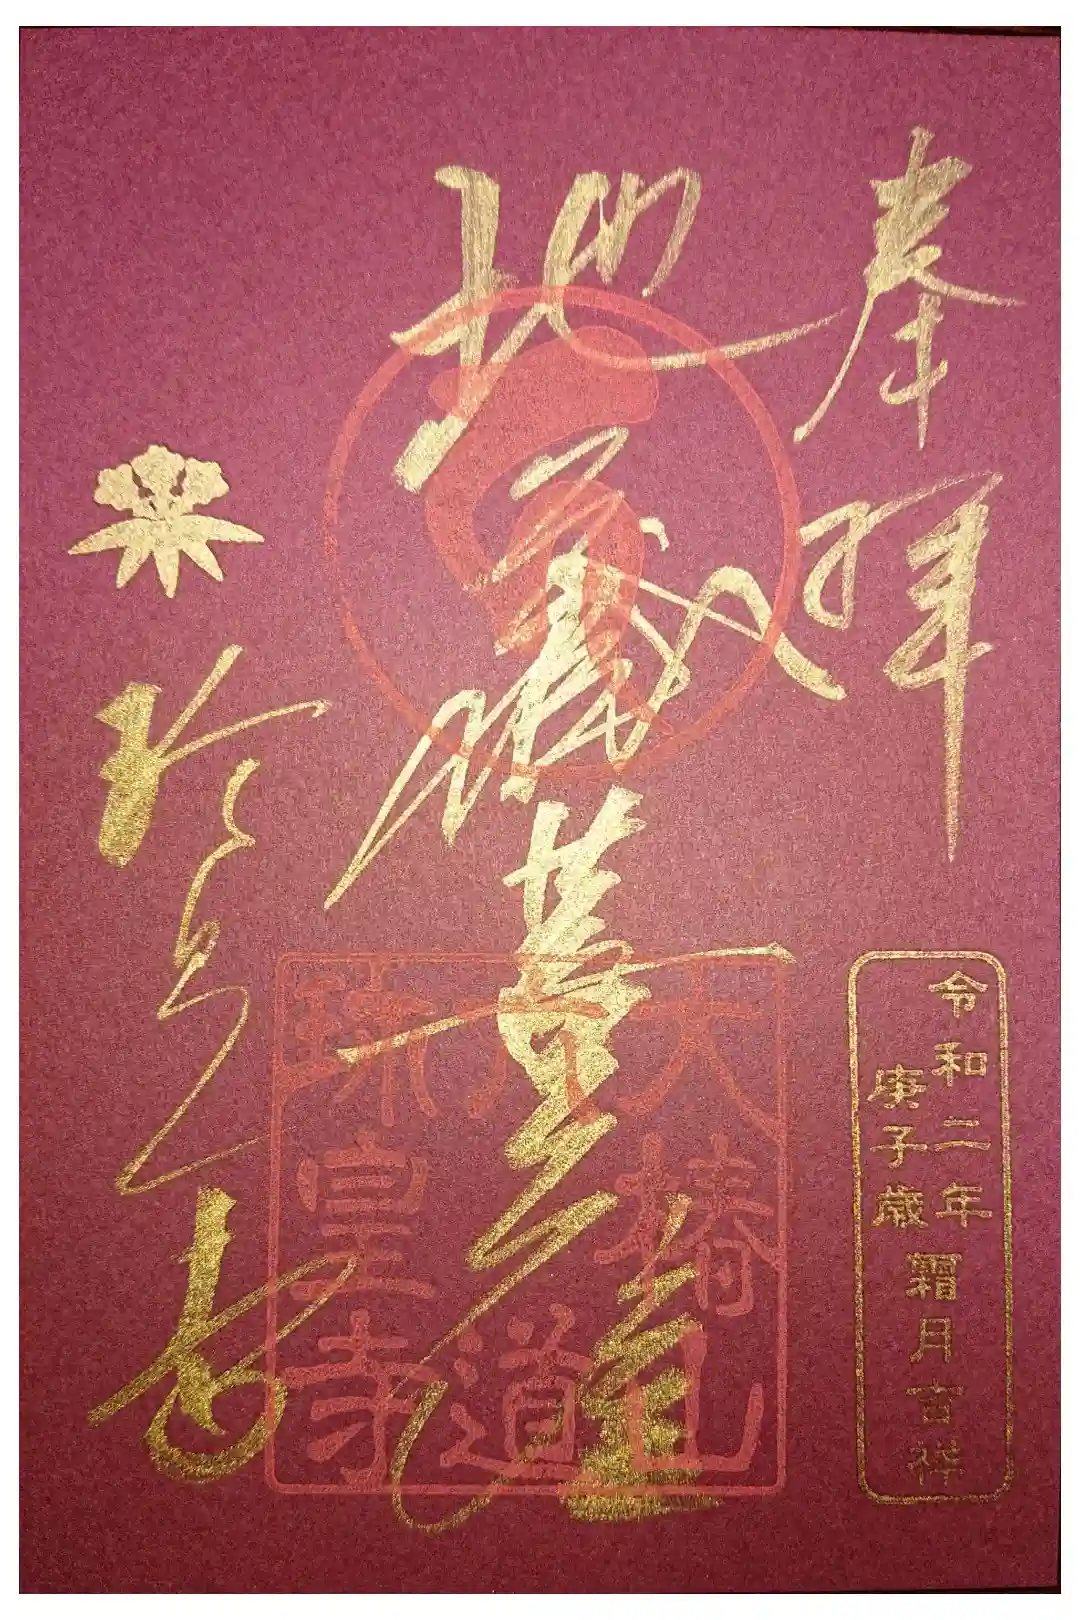 奉拝
令和二年
庚子歳
霜月吉祥
地蔵菩薩
大椿山
六道
珍皇寺
珍皇寺